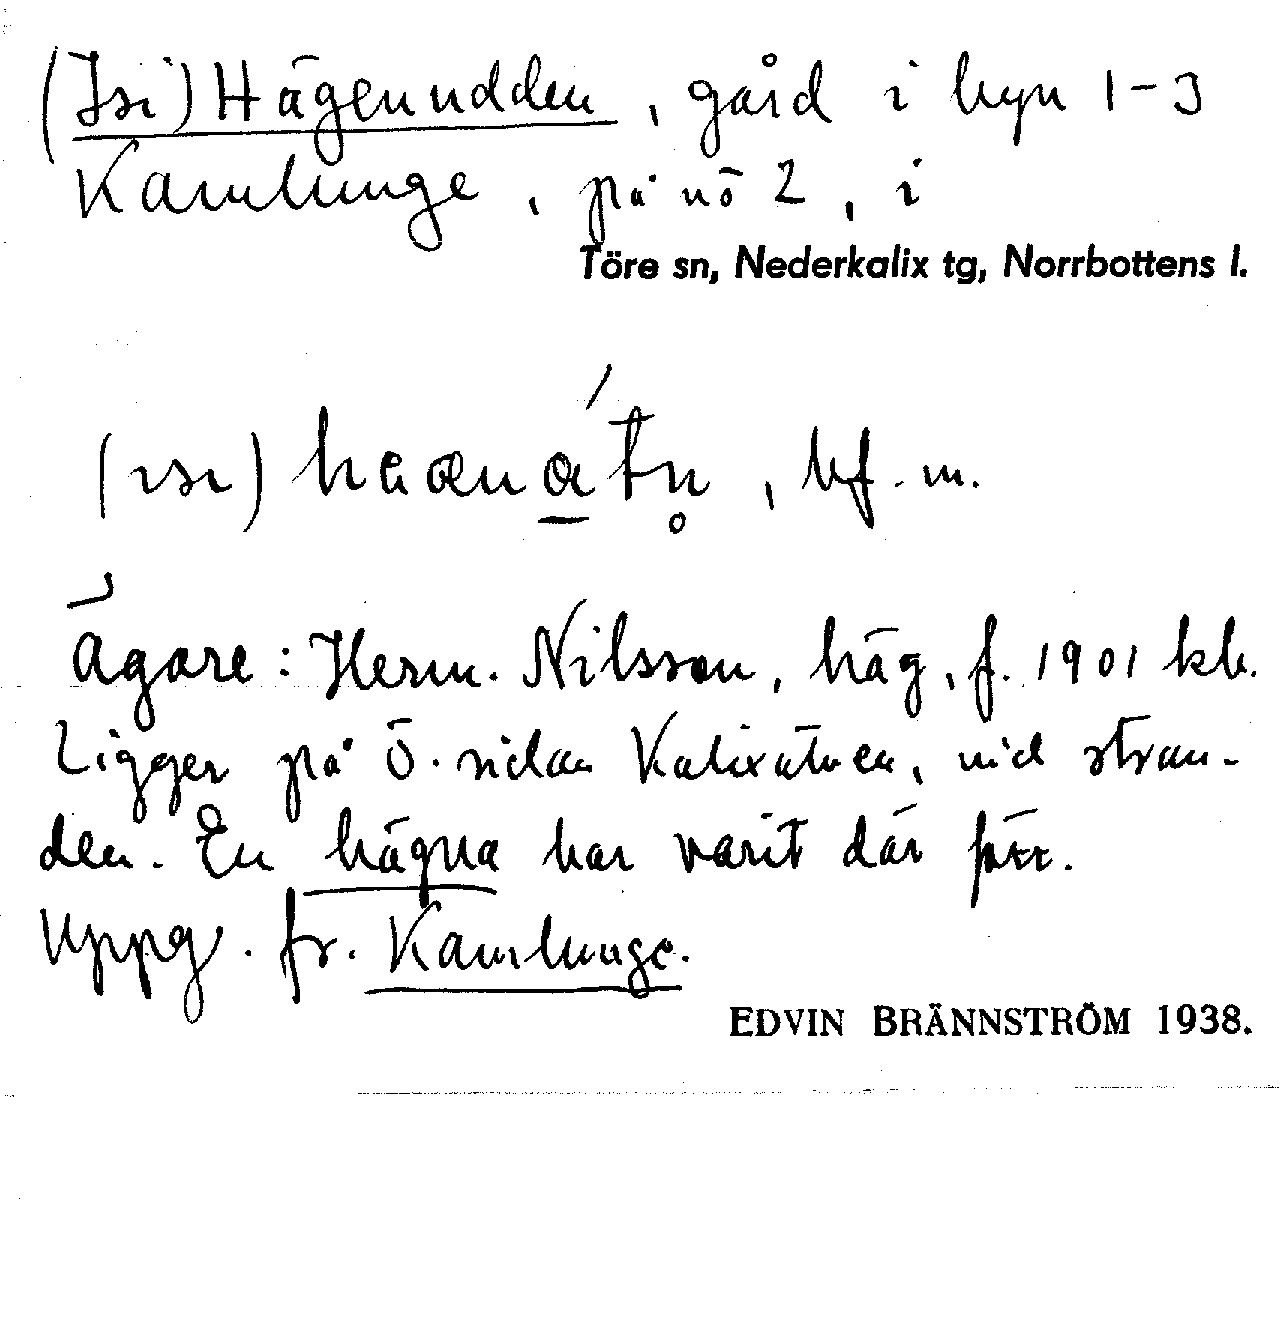 (Isi) Hägenudden, gård i byn 1-3
Kamlunge, på nö 2, i
Töre sn, Nederkalix tg, Norrbottens l.
(isi) , bf. m.
Ägare: Herm. Nilsson, häg, f. 1901 kb.
Ligger på ö. sidan Kalixälven, vid stran-
den. En hägna har varit där förr.
Uppg. fr. Kamlunge.
EDVIN BRÄNNSTRÖM 1938.